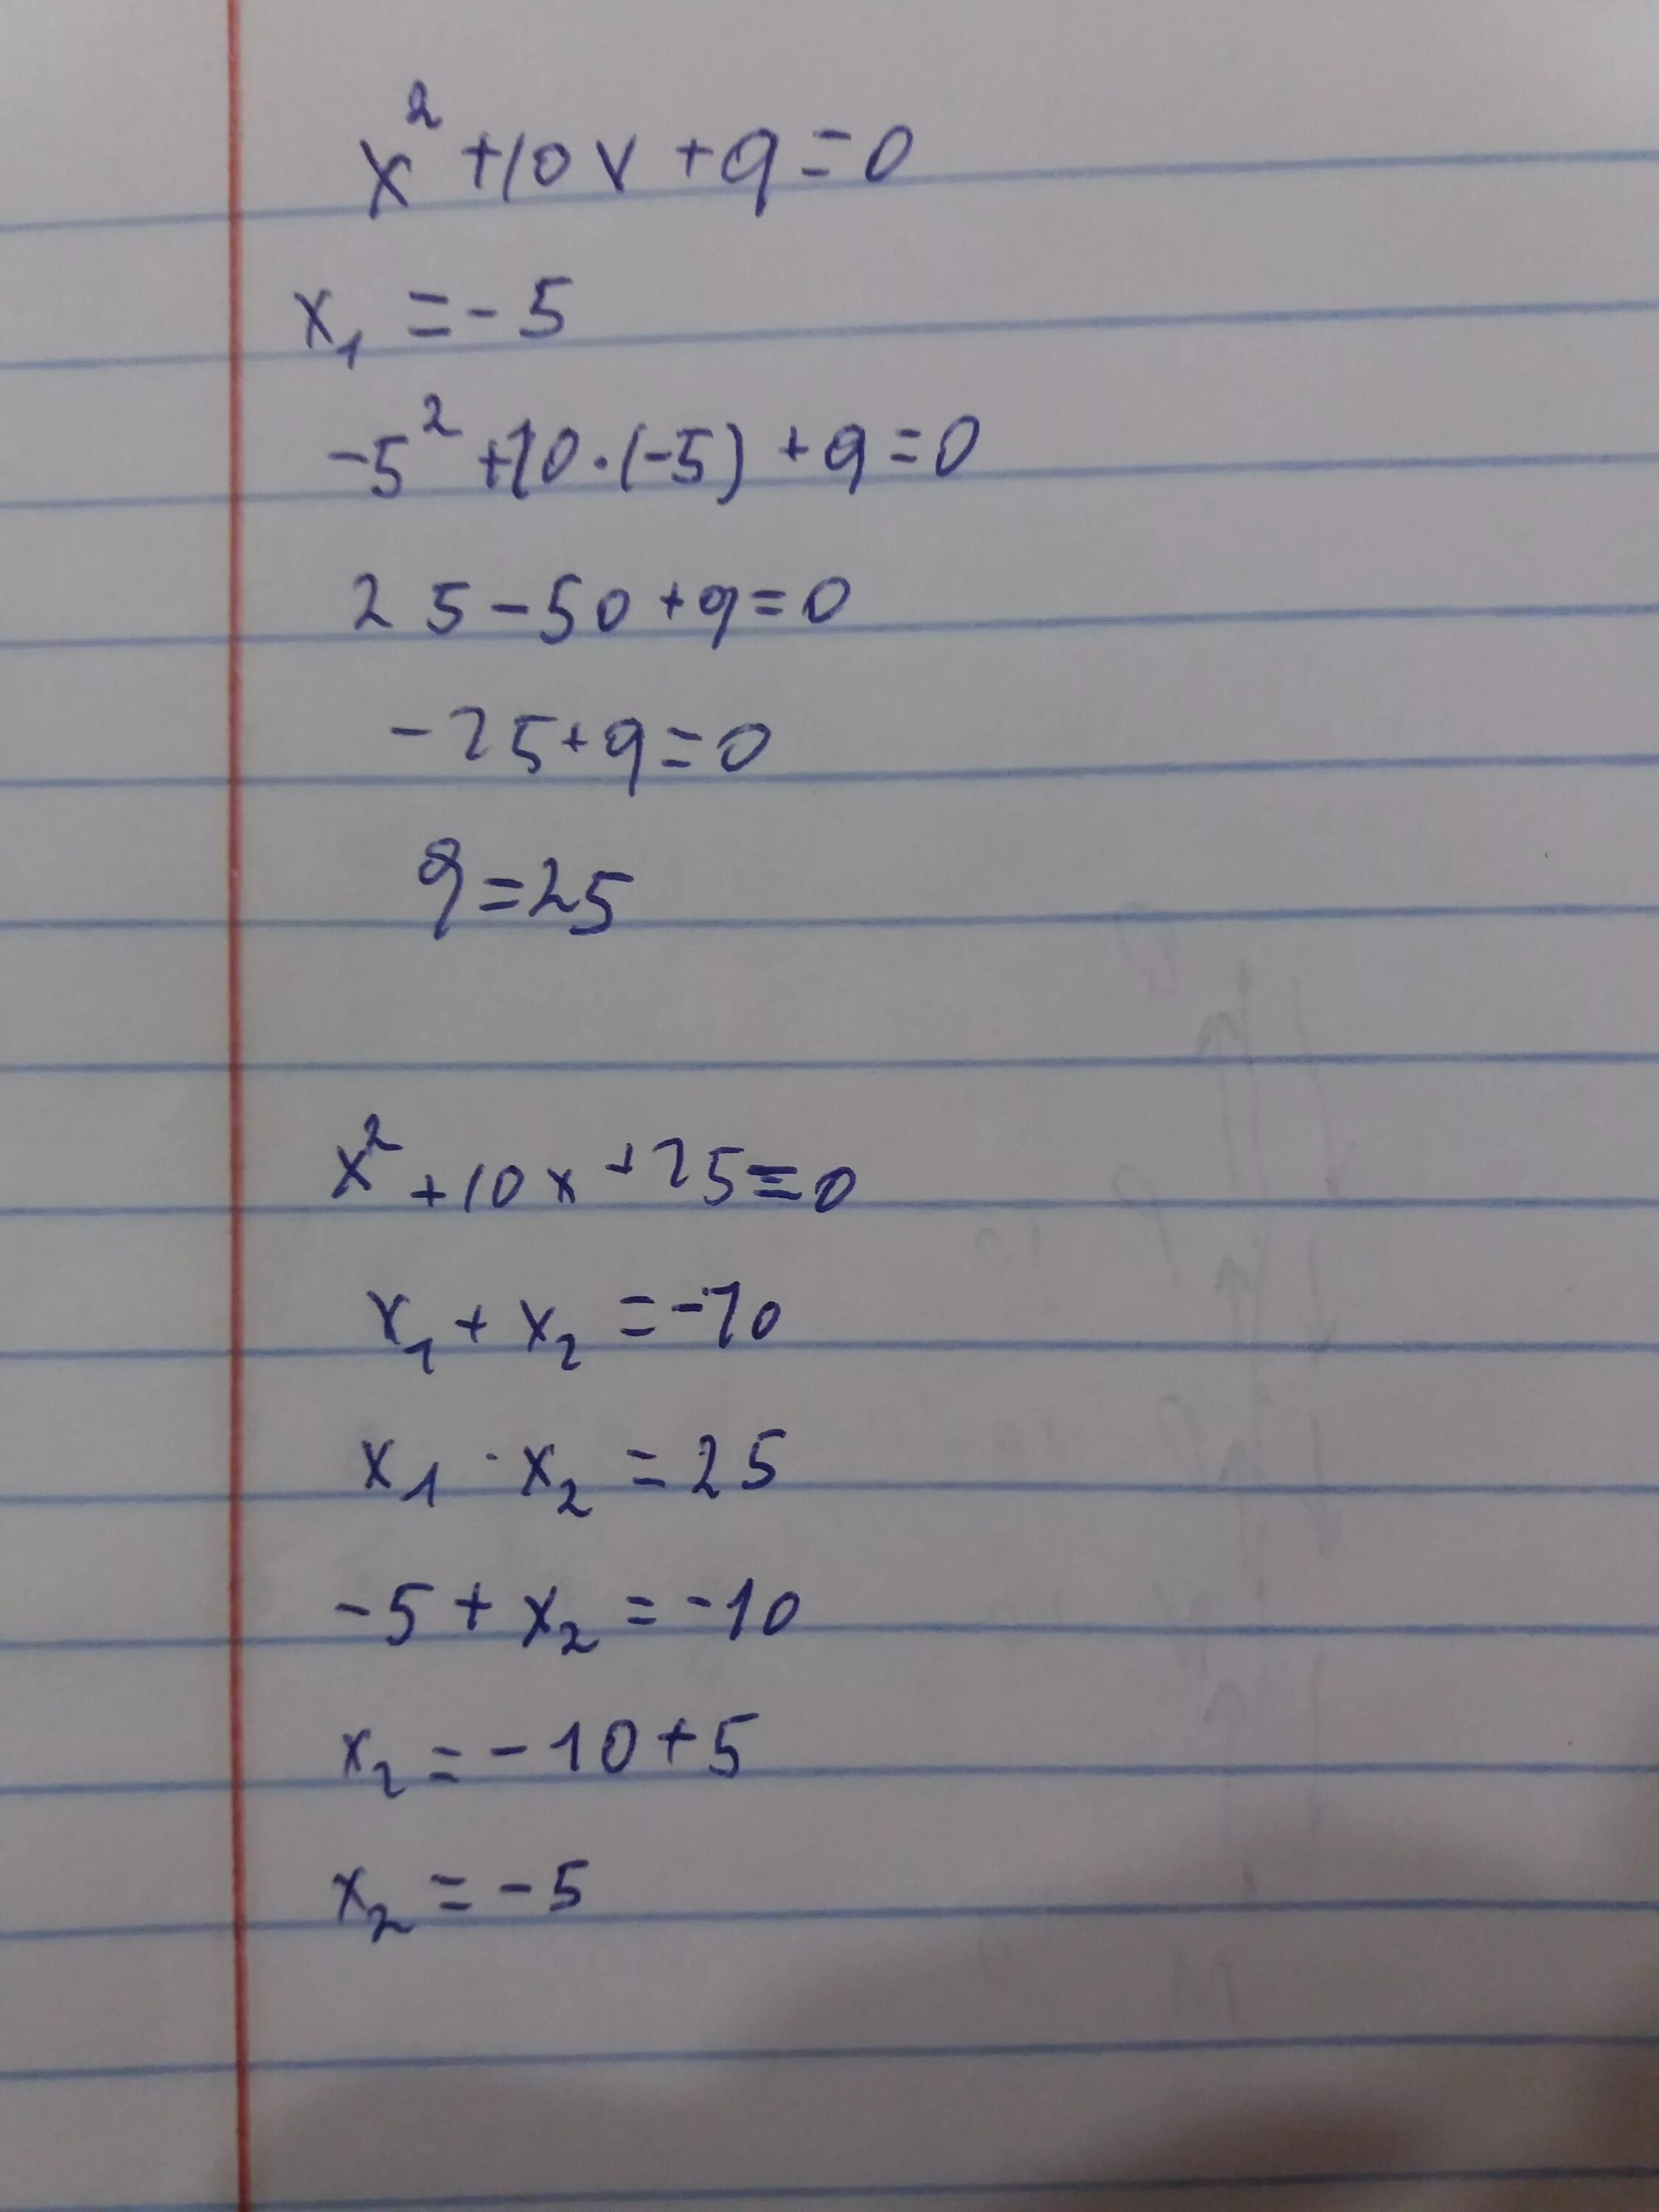 x² + 10x + q = 0
x₁ = -5
-5² + 10 · (-5) + q = 0
25 - 50 + q = 0
-25 + q = 0
q = 25
x² + 10x + 25 = 0
x₁ + x₂ = -10
x₁ · x₂ = 25
-5 + x₂ = -10
x₂ = -10 + 5
x₂ = -5